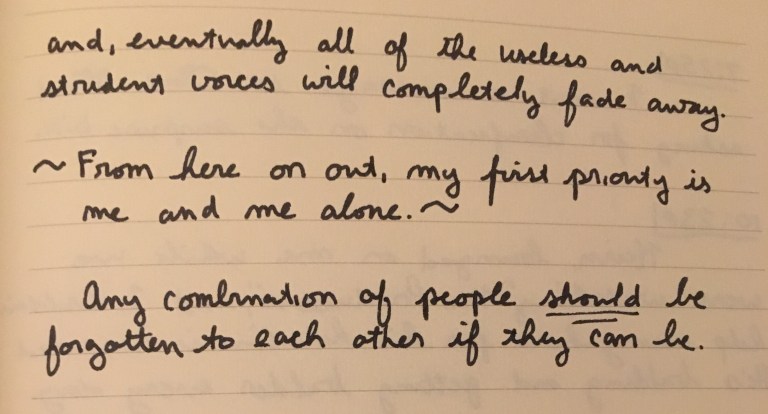 and, eventually all of the useless and
strident voices will completely fade away.
~ From here on out, my first priority is
me and me alone. ~
Any combination of people should be
forgotten to each other if they can be.